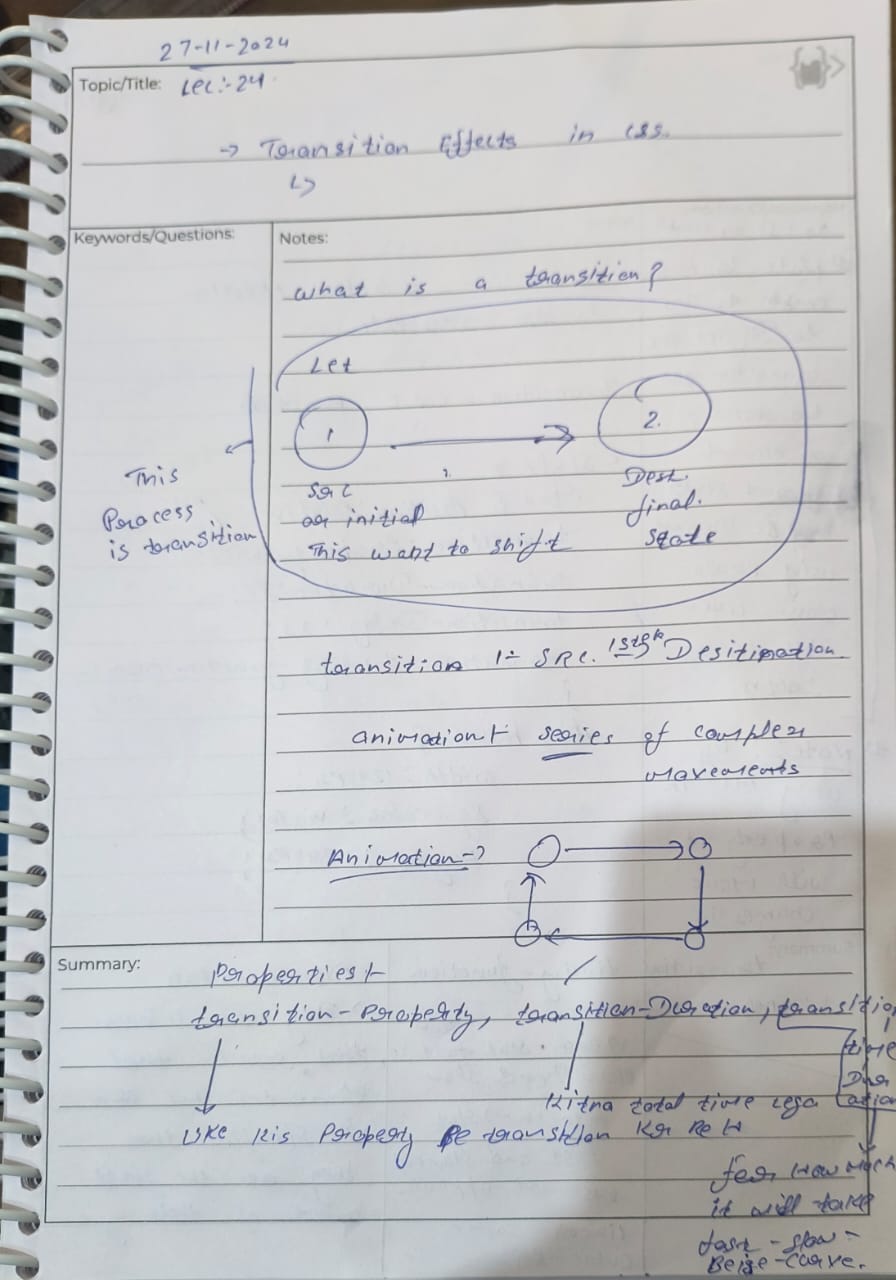 27-11-2024
Topic/Title: Lec:-24
→ Transition Effects in css.
↳
Keywords/Questions:
Notes:
what is a transition?
Let
1 → 2.
Src
or initial
This want to shift
Dest.
final.
state
This
Process
is transition
transition :- SRC. 1 step Desitination
animation :- series of complex
movements
Animation →
Summary:
Properties :-
transition-Property, transition-Duration, transition
time
Dur
ation
Kitna total time lega
Like kis Property pe transition
for How much
it will take
fast - slow =
Beize-Curve.